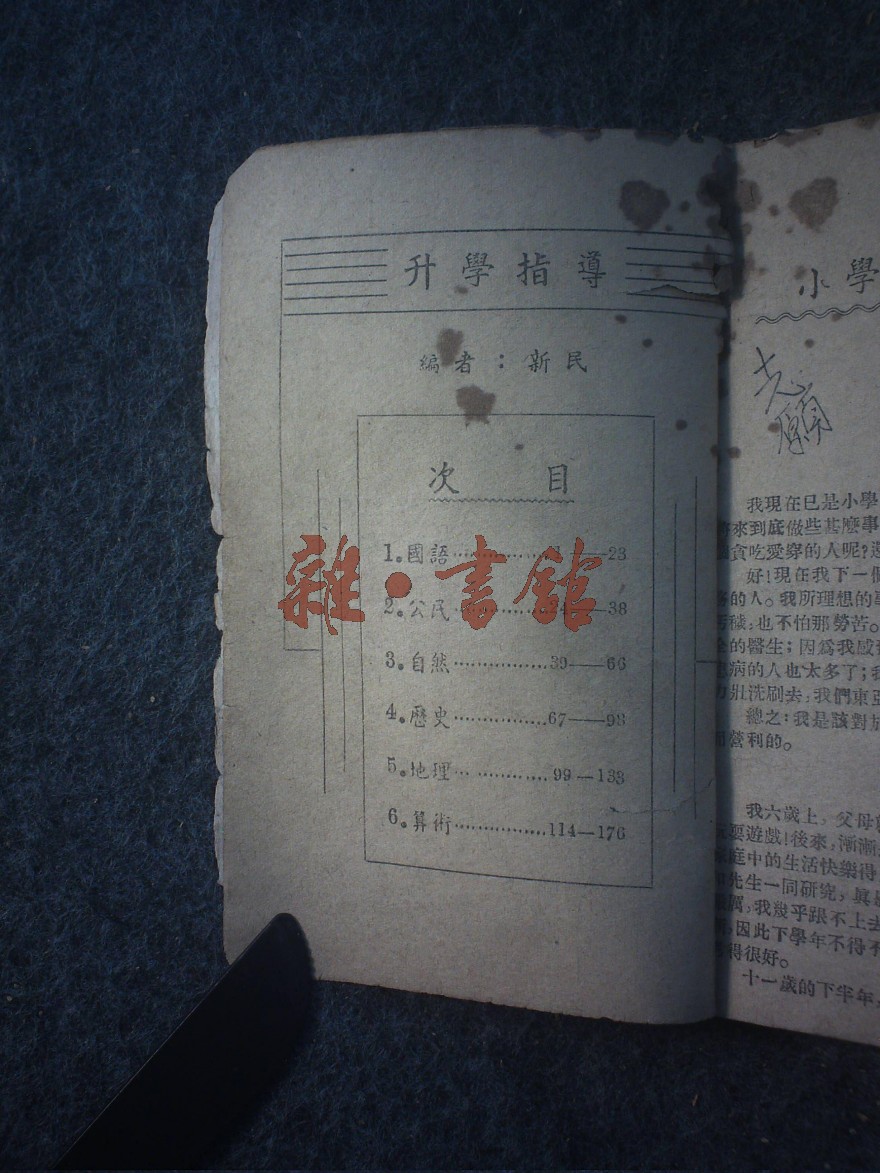 升學指導
編者：新民
次 目
1.國語……………—23
2.公民……………—38
3.自然……………39——66
4.歷史……………67——98
5.地理……………99—133
6.算術……………114—176
雜·書館
小學
我現在已是小學
來到底做些甚麽事
貪吃愛穿的人呢?還
好!現在我下一個
的人。我所理想的事
穢,也不怕那勞苦。
的醫生;因爲我感
病的人也太多了;我
壯洗刷去,我們東亞
總之:我是該對於
營利的。
我六歲上,父母
耍遊戲!後來,漸漸
庭中的生活快樂得
先生一同研究,眞是
,我幾乎跟不上去
因此下學年不得不
得很好。
十一歲的下半年,